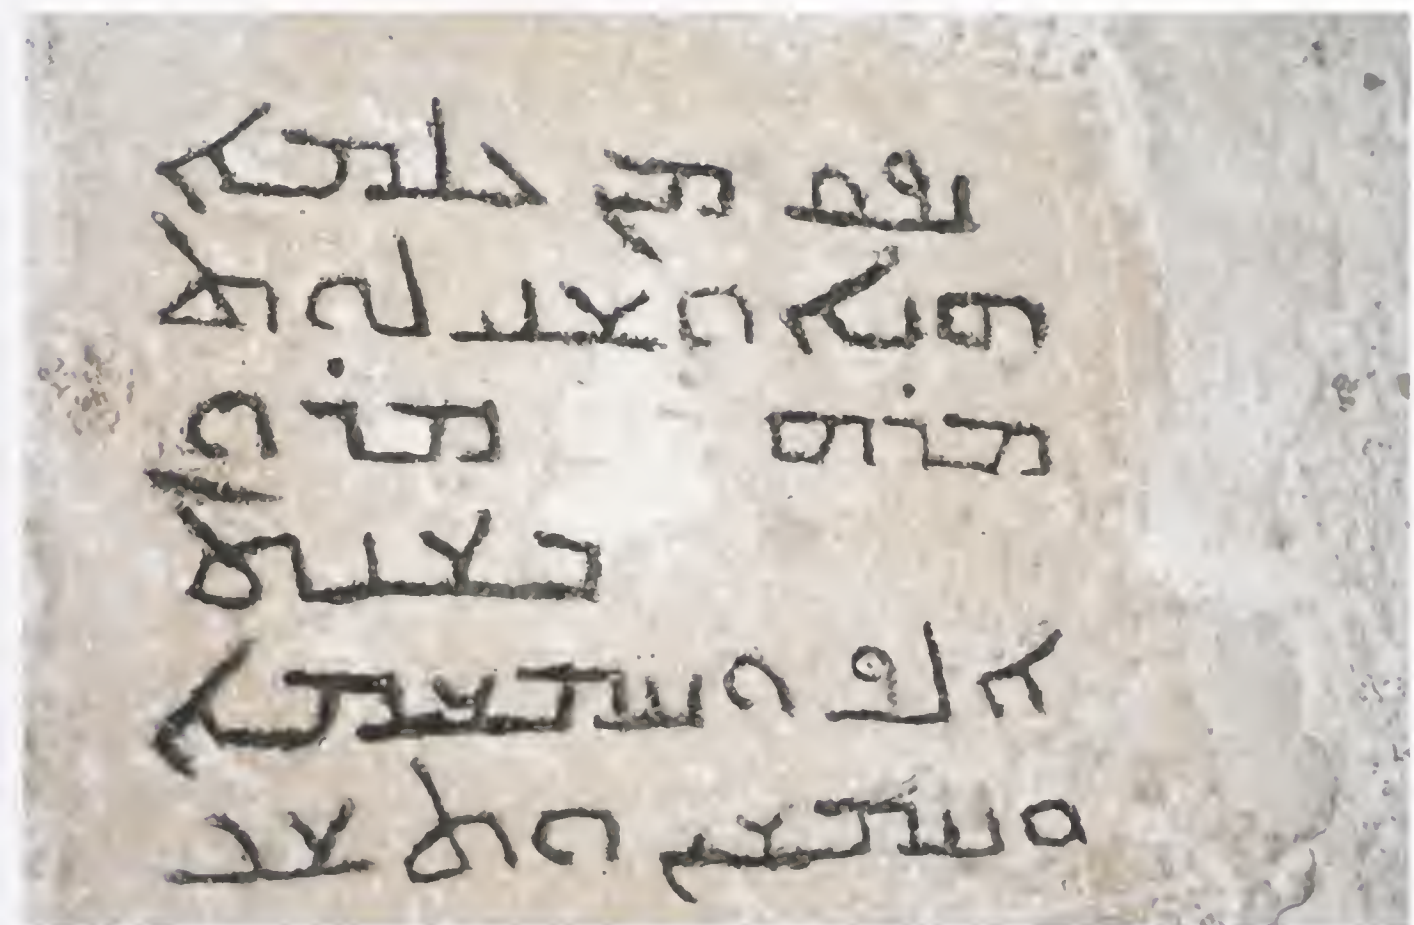 ܢܦܩ ܡܢ ܥܠܡܐ
ܗܢܐ ܘܫܢܝ ܠܘܬ
ܡܪܗ ܡܪܘܢ
ܒܫܢܬ
ܐܠܦ ܘܚܡܫܡܐ
ܘܚܡܫܝܢ ܘܬܫܥ